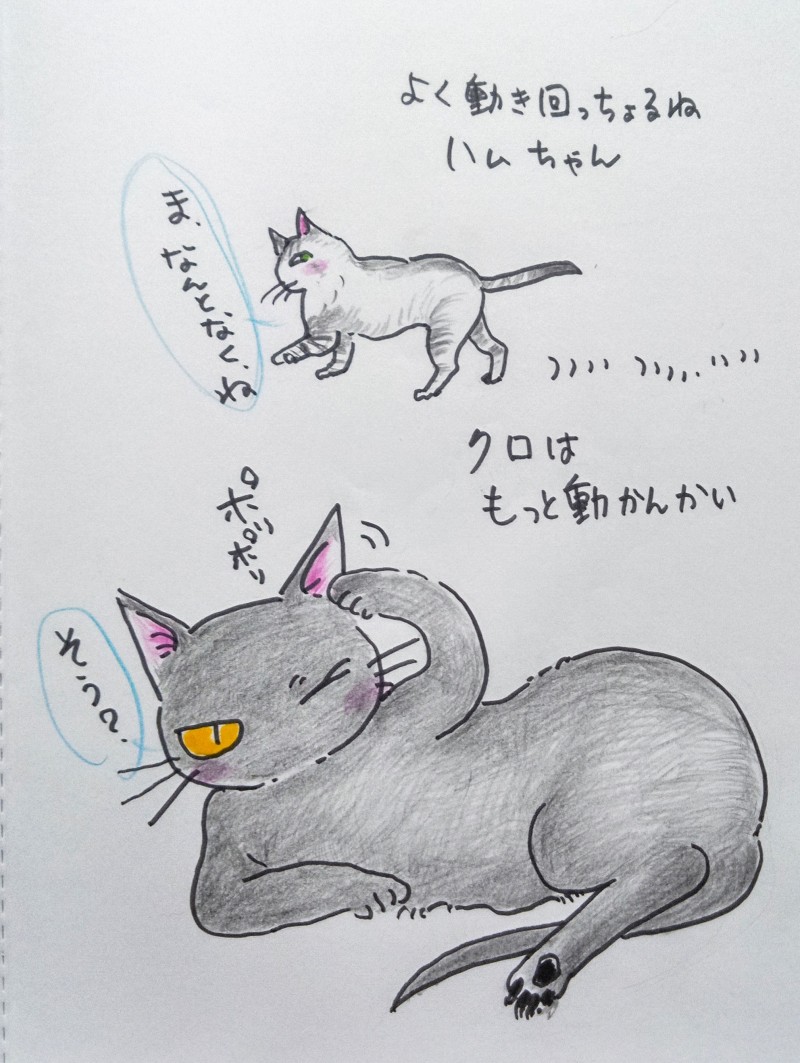 よく動き回っちょるね
ハムちゃん
ま、なんと、なく、ね
クロは
もっと動かんかい
ポリポリ
そ、う?